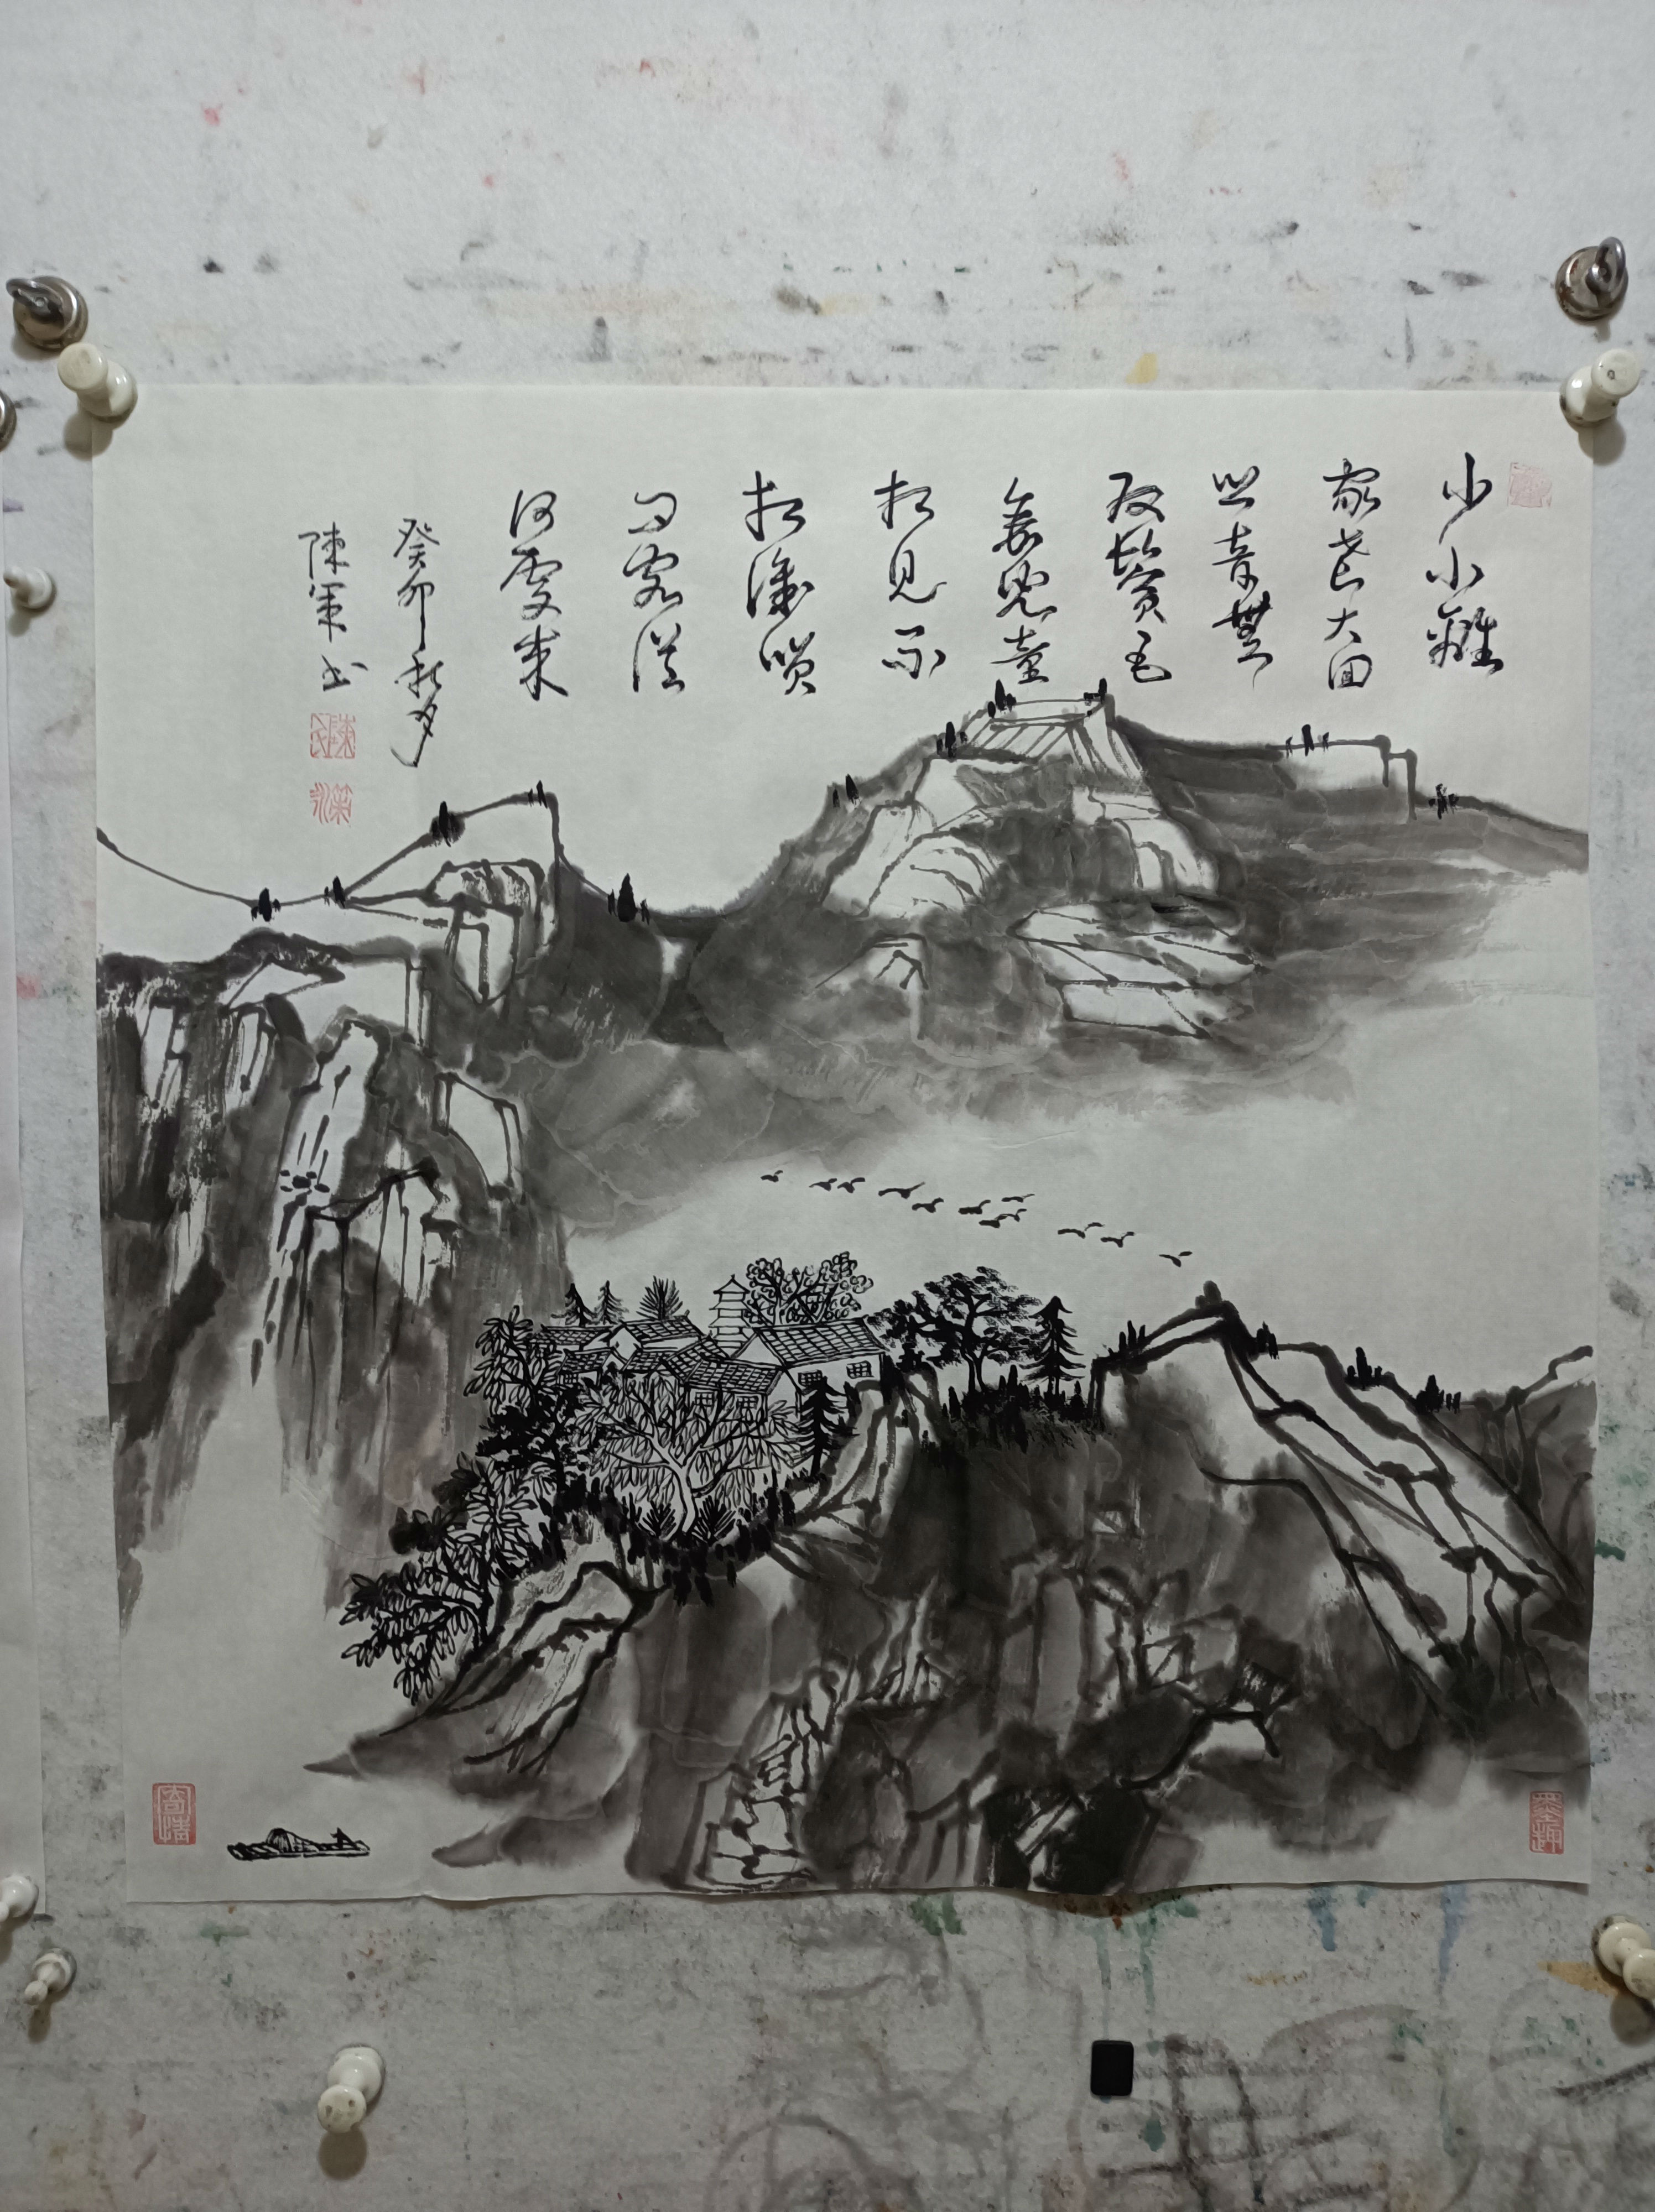 少小離
家老大回
鄉音無
改鬢毛
衰兒童
相見不
相識笑
問客從
何處來
癸卯秋月
陳軍书
墨趣